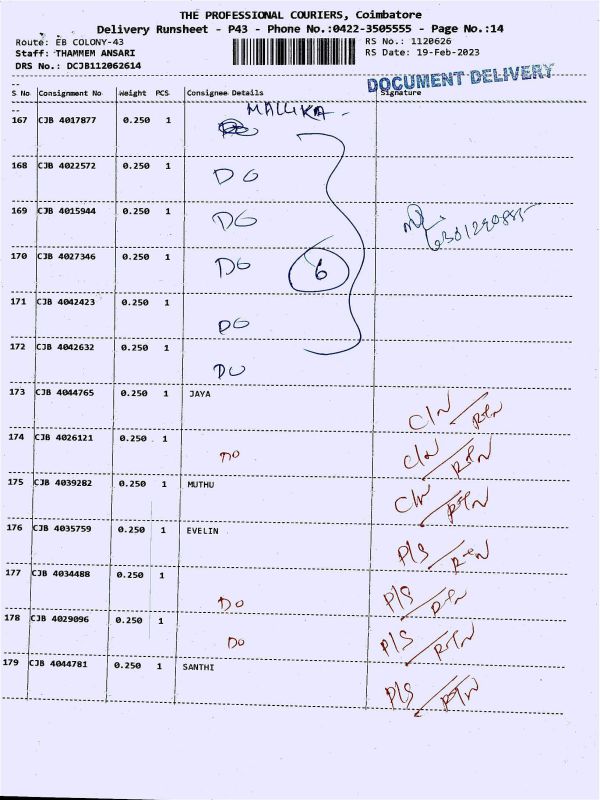 THE PROFESSIONAL COURIERS, Coimbatore
Delivery Runsheet - P43 - Phone No.:0422-3505555 - Page No.:14
Route: EB COLONY-43 RS No.: 1120626
Staff: THAMMEM ANSARI RS Date: 19-Feb-2023
DRS No.: DCJB112062614
DOCUMENT DELIVERY
S No Consignment No Weight PCS Consignee Details Signature
MALLIKA
167 CJB 4017877 0.250 1
168 CJB 4022572 0.250 1 DO
169 CJB 4015944 0.250 1 DO
170 CJB 4027346 0.250 1 DO 6
171 CJB 4042423 0.250 1 DO
172 CJB 4042632 0.250 1 DO
173 CJB 4044765 0.250 1 JAYA C/N/RTN
174 CJB 4026121 0.250 1 DO C/N/RTN
175 CJB 4039282 0.250 1 MUTHU C/N/RTN
176 CJB 4035759 0.250 1 EVELIN P/S/RTN
177 CJB 4034488 0.250 1 DO P/S/RTN
178 CJB 4029096 0.250 1 DO P/S/RTN
179 CJB 4044781 0.250 1 SANTHI P/S/RTN